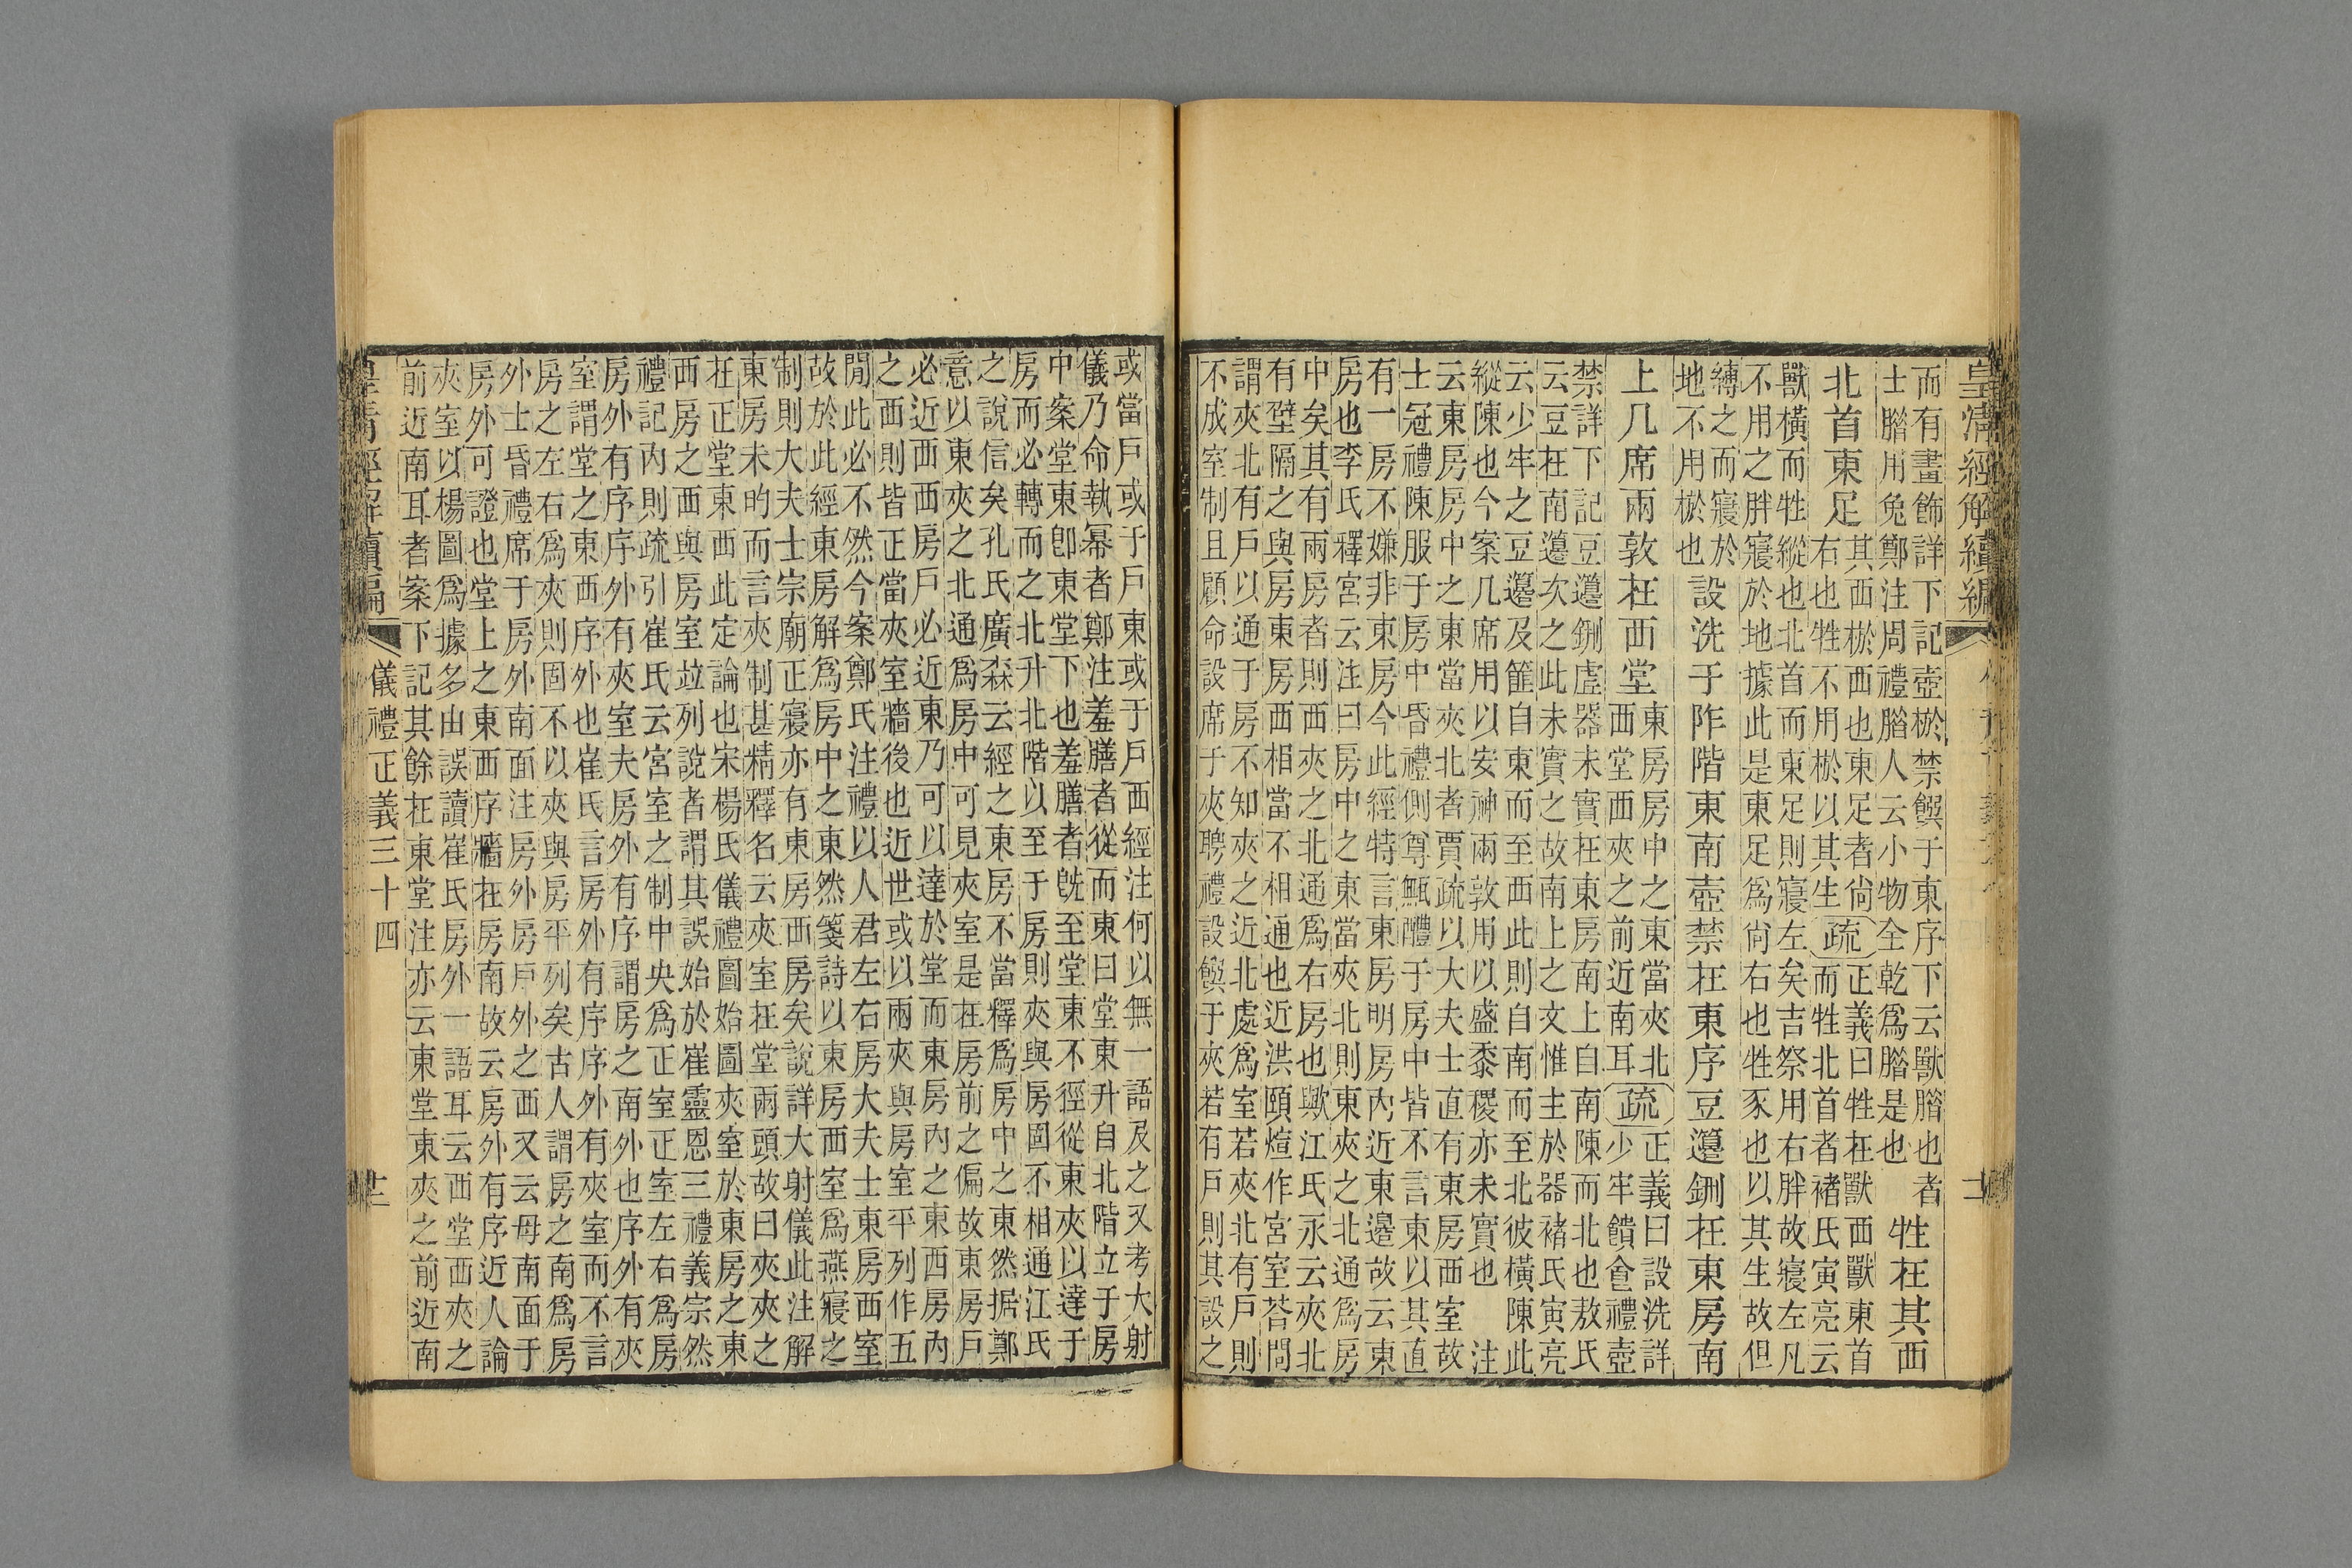 皇清經解續編
而有畫飾詳下記壺棜禁饌于東序下云獸腊也者
士腊用兔鄭注周禮腊人云小物全乾爲腊是也 牲在其西
北首東足
其西棜西也東足者尙
右也牲不用棜以其生
疏
正義曰牲在獸西獸東首
而牲北首者褚氏寅亮云
獸橫而牲縱也北首而東足則寢左矣吉祭用右胖故寢左凡
不用之胖寢於地據此是東足爲尙右也牲豕也以其生故但
縛之而寢於
地不用棜也
設洗于阼階東南壺禁在東序豆籩鉶在東房南
上几席兩敦在西堂
東房房中之東當夾北
西堂西夾之前近南耳
疏
正義曰設洗詳
少牢饋食禮壺
禁詳下記豆籩鉶虛器未實在東房南上自南陳而北也敖氏
云豆在南籩次之此未實之故南上之文惟主於器褚氏寅亮
云少牢之豆籩及篚自東而至西此則自南而至北彼橫陳此
縱陳也今案几席用以安神兩敦用以盛黍稷亦未實也 注
云東房房中之東當夾北者賈疏以大夫士直有東房西室故
士冠禮陳服于房中昏禮側尊甒醴于房中皆不言東以其直
有一房不嫌非東房今此經特言東房明房內近東邊故云東
房也李氏釋宮云注曰房中之東當夾北則東夾之北通爲房
中矣其有兩房者則西夾之北通爲右房也歟江氏永云夾北
有壁隔之與房東房西相當不相通也近洪頤煊作宮室荅問
謂夾北有戶以通于房不知夾之近北處爲室若夾北有戶則
不成室制且顧命設席于夾聘禮設饌于夾若有戶則其設之
或當戶或于戶東或于戶西經注何以無一語及之又考大射
儀乃命執冪者鄭注羞膳者從而東曰堂東升自北階立于房
中案堂東卽東堂下也羞膳者旣至堂東不徑從東夾以達于
房而必轉而之北升北階以至于房則夾與房固不相通江氏
之說信矣孔氏廣森云經之東房不當釋爲房中之東然据鄭
意以東夾之北通爲房中可見夾室是在房前之偏故東房戶
必近西西房戶必近東乃可以達於堂而東房內之東西房內
之西則皆正當夾室牆後也近世或以兩夾與房室平列作五
閒此必不然今案鄭氏注禮以人君左右房大夫士東房西室
故於此經東房解爲房中之東然箋詩以東房西室爲燕寢之
制則大夫士宗廟正寢亦有東房西房矣說詳大射儀此注解
東房未昀而言夾制甚精釋名云夾室在堂兩頭故曰夾夾之
在正堂東西此定論也宋楊氏儀禮圖始圖夾室於東房之東
西房之西與房室竝列說者謂其誤始於崔靈恩三禮義宗然
禮記內則疏引崔氏云宮室之制中央爲正室正室左右爲房
房外有序序外有夾室夫房外有序謂房之南外也序外有夾
室謂堂之東西序外也崔氏言房外有序序外有夾室而不言
房之左右爲夾則固不以夾與房平列矣古人謂房之南爲房
外士昏禮席于房外南面注房外房戶外之西又云母南面于
房外可證也堂上之東西序牆在房南故云房外有序近人論
夾室以楊圖爲據多由誤讀崔氏房外一語耳云西堂西夾之
前近南耳者案下記其餘在東堂注亦云東堂東夾之前近南
皇清經解續編 儀禮正義三十四